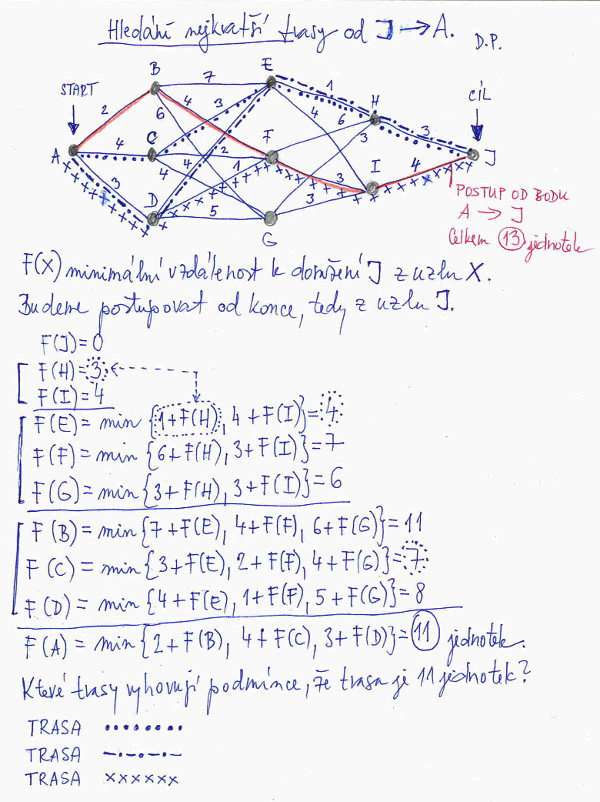 Hledání nejkratší trasy od J → A.
D.P.
START
CÍL
A
B
C
D
E
F
G
H
I
J
2
4
3
7
4
6
3
2
4
4
1
5
1
4
6
3
3
3
3
4
POSTUP OD BODU
A → J
Celkem 13 jednotek
F(X) minimální vzdálenost k dosažení J z uzlu X.
Budeme postupovat od konce, tedy z uzlu J.
F(J)=0
F(H)=3
F(I)=4
F(E)=min{1+F(H), 4+F(I)}=4
F(F)=min{6+F(H), 3+F(I)}=7
F(G)=min{3+F(H), 3+F(I)}=6
F(B)=min{7+F(E), 4+F(F), 6+F(G)}=11
F(C)=min{3+F(E), 2+F(F), 4+F(G)}=7
F(D)=min{4+F(E), 1+F(F), 5+F(G)}=8
F(A)=min{2+F(B), 4+F(C), 3+F(D)}=11 jednotek.
Které trasy vyhovují podmínce, že trasa je 11 jednotek?
TRASA
TRASA
TRASA xxxxxx